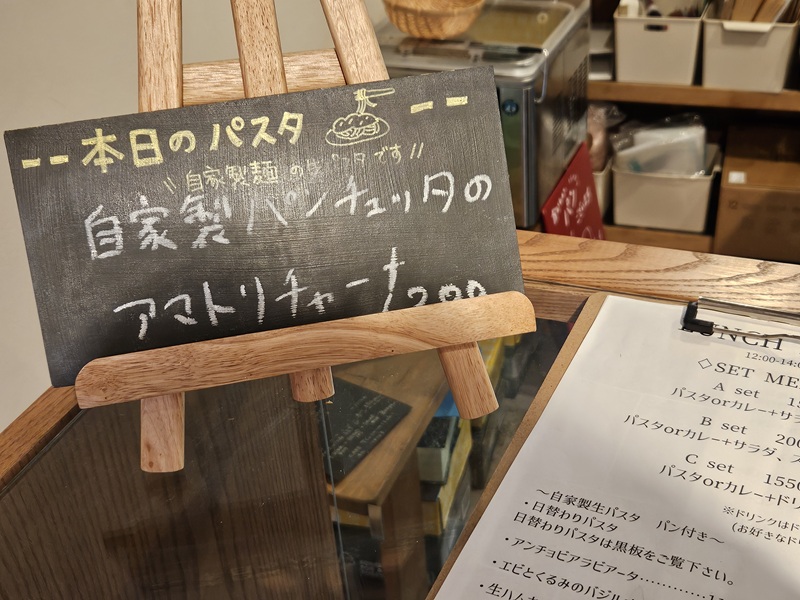 -- 本日のパスタ --
\\ 自家製麺の生パスタです //
自家製パンチェッタの
アマトリチャーナ
LUNCH
12:00-14:
◇SET ME
A set
パスタorカレー+サラ
B set 200
パスタorカレー+サラダ、ス
C set 1550
パスタorカレー+ドリ
※ドリンクはド
(お好きなド
〜自家製生パスタ パン付き〜
・日替わりパスタ
日替わりパスタは黒板をご覧下さい。
・アンチョビアラビアータ
・エビとくるみのバジル
・生ハム